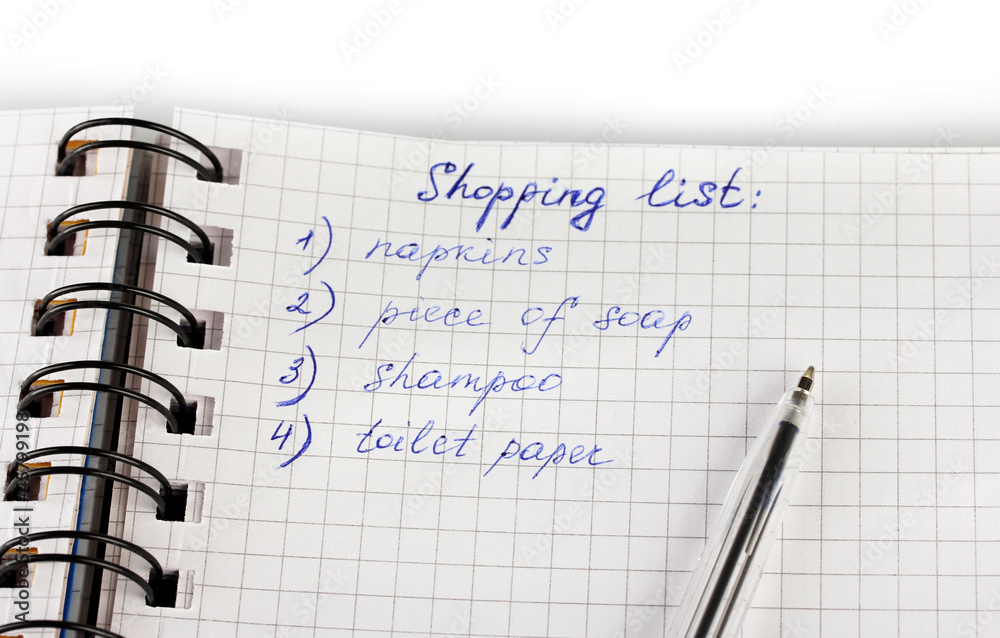 Shopping list:
1) napkins
2) piece of soap
3) shampoo
4) toilet paper
Adobe Stock | 45799198